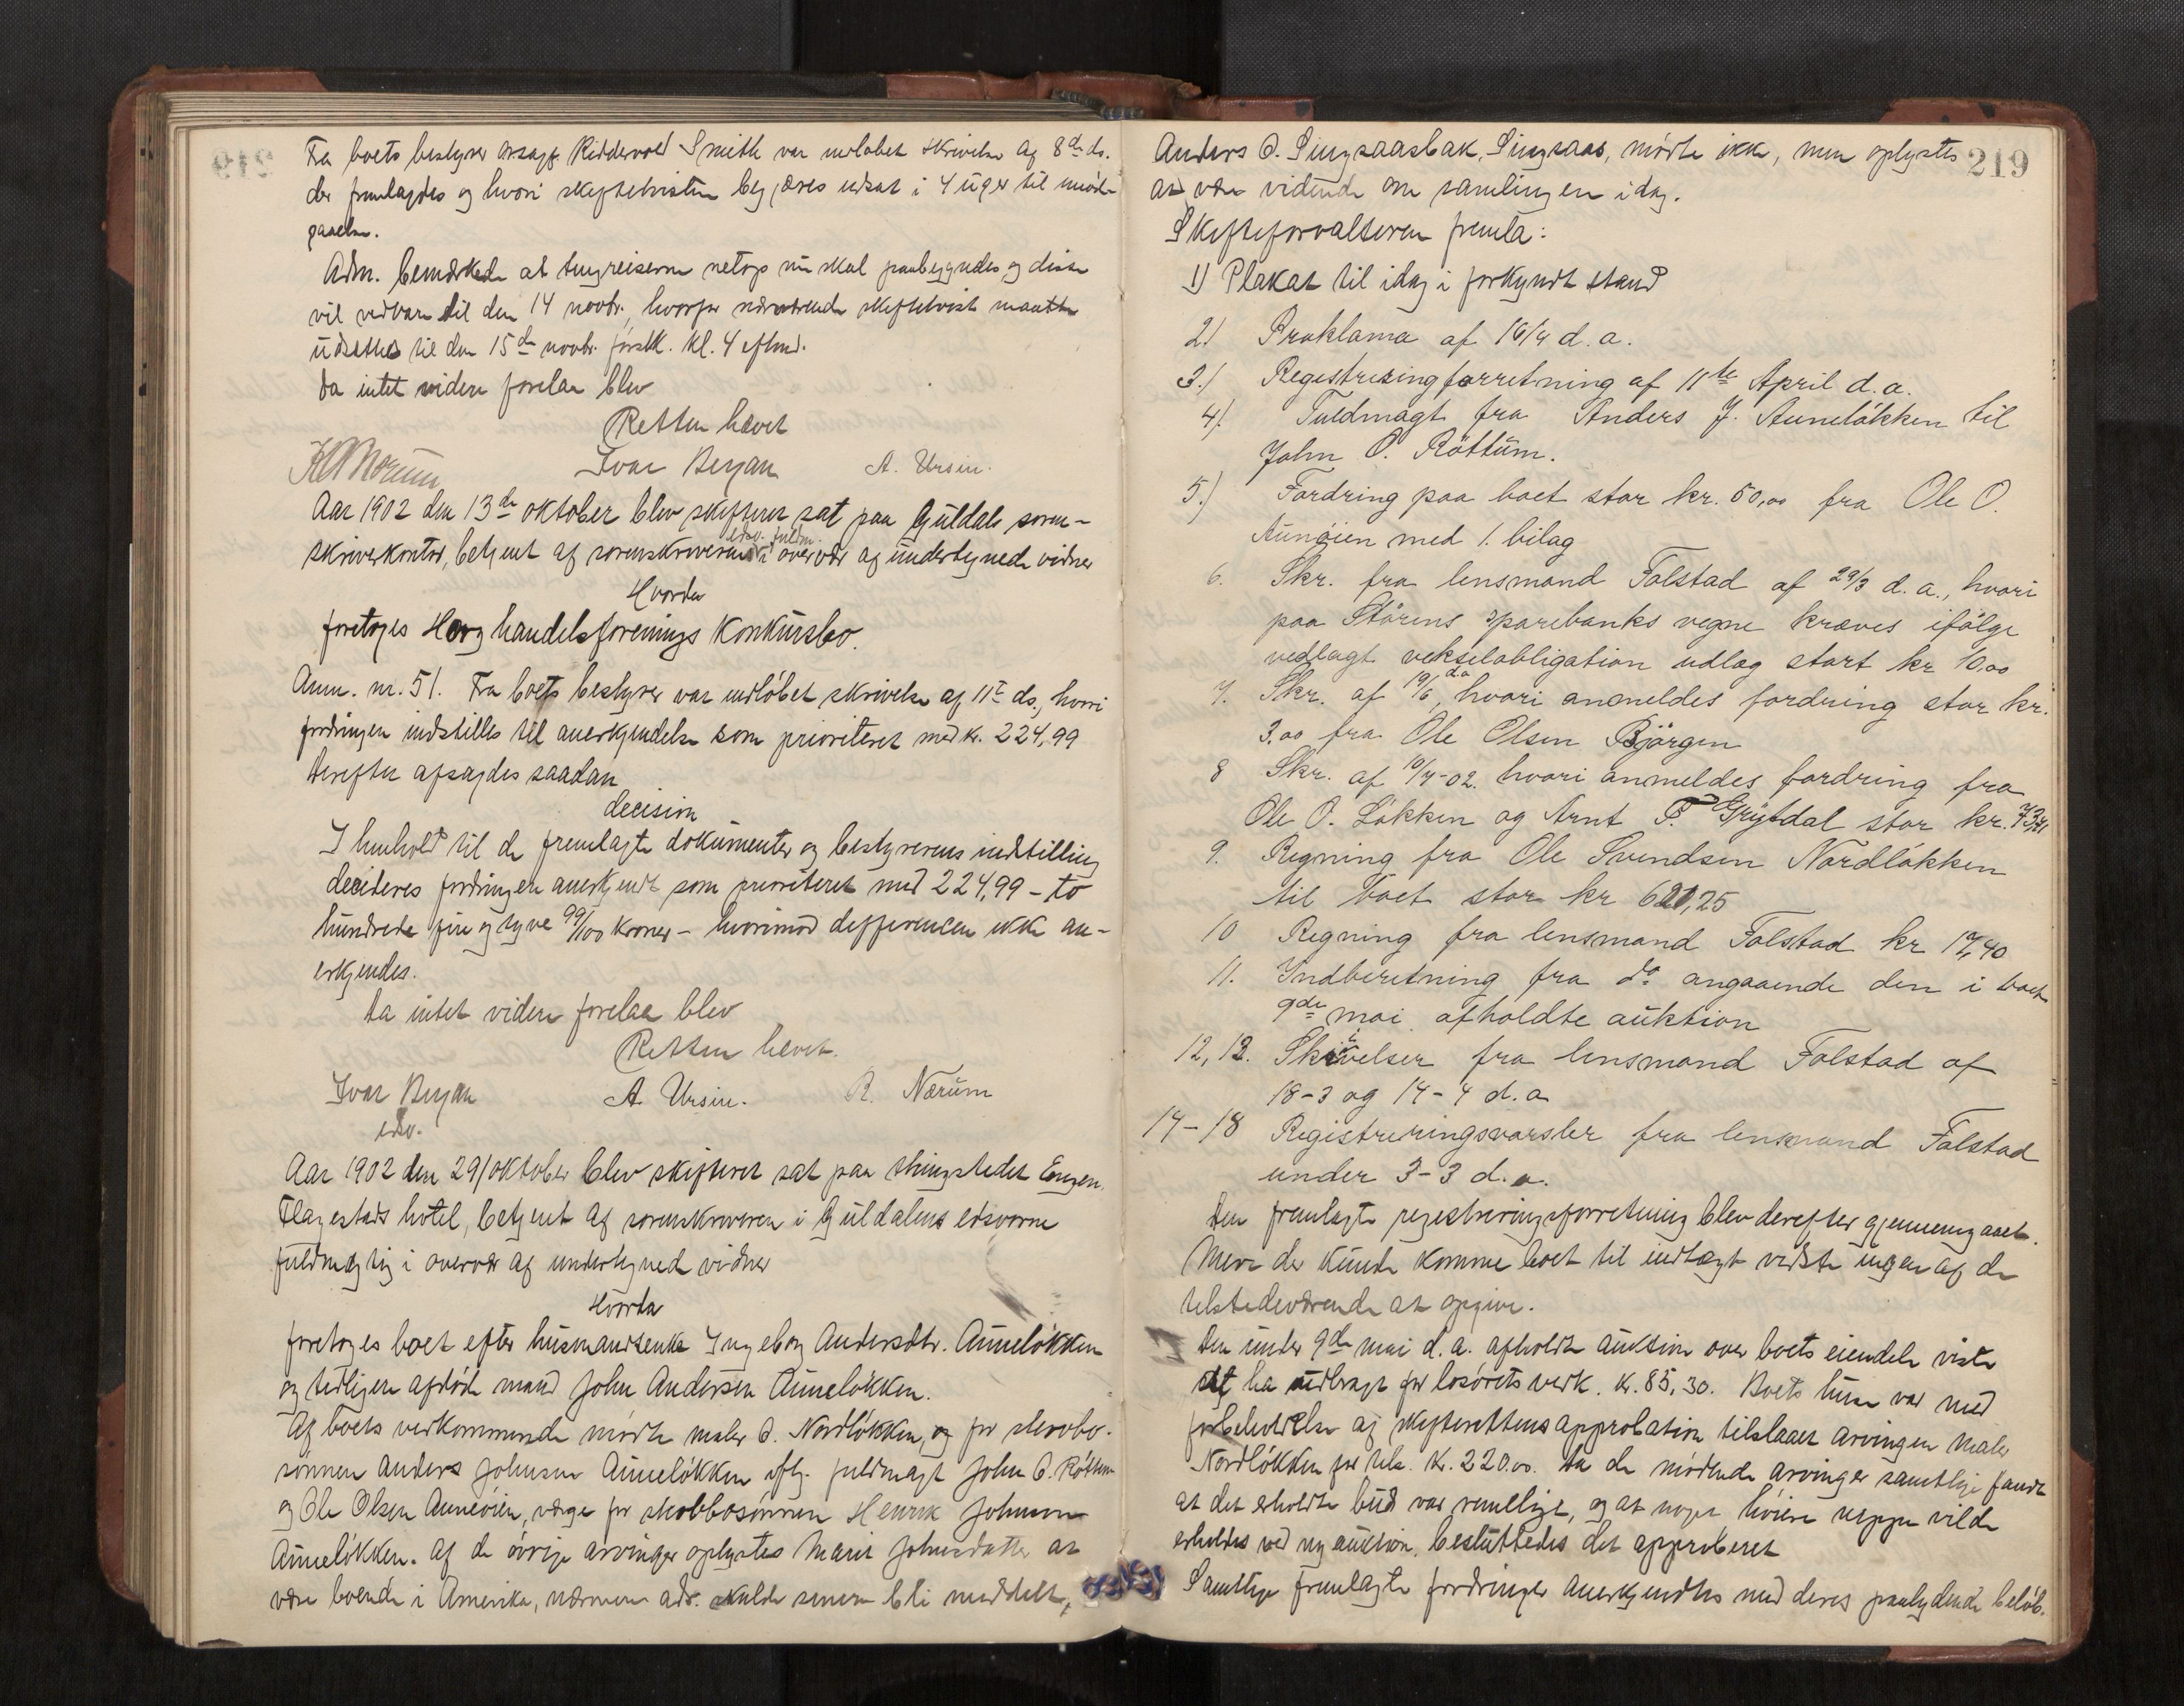 Fra boets bestyrer orsagf. Riddervold Smith var indløbet skrivelse af 8de ds.
der fremlagdes og hvori skiftetvisten begjæres udsat i 4 uger til mød-
gaaelse.
Adm. bemærkede at tingreiserne netop nu skal paabegyndes og disse
vil vedvare til den 14 novbr., hvorfor nærværende skiftetvist maatte
udsættes til den 15de novbr. førstk. kl. 4 eftmd.
Da intet videre forelaa blev
Retten hævet
Ivar Bergan A. Ursin.
Aar 1902 den 13de oktober blev skifteret sat paa Guldals soren-
skriverkontor, betjent af sorenskriverens edsv. fuldm. i overvær af undertegnede vidner
Hvorda
foretoges Horg handelsforenings konkursbo.
Anm. nr. 51. Fra boets bestyrer var indløbet skrivelse af 11te ds., hvori
fordringen indstilles til anerkjendelse som prioriteret med kr. 224,99
Derefter afsagdes saadan
decision
I henhold til de fremlagte dokumenter og bestyrerens indstilling
decideres fordringen anerkjendt som prioriteret med 224,99 - to
hundrede fire og tyve 99/100 kroner - hvorimod differencen ikke an-
erkjendes.
Da intet videre forelaa blev
Retten hævet.
Ivar Bergan A. Ursin. R. Nærum
edsv.
Aar 1902 den 29/ oktober blev skifteret sat paa thingstedet Engen,
Flagestads hotel, betjent af sorenskriveren i Guldalens edsvorne
fuldmægtig i overvær af undertegnede vidner
Hvorda
foretoges boet efter husmandsenke Ingeborg Andersdtr. Auneløkken
og tidligere afdøde mand John Andersen Auneløkken.
Af boets vedkommende mødte maler O. Nordløkken, og for sterbo-
sønnen Anders Johnsen Auneløkken iflg. fuldmagt John O. Røttum
og Ole Olsen Auneøien, værge for sterbbosønnen Henrik Johnsen
Auneløkken. Af de øvrige arvinger oplystes Marit Johnsdatter at
være boende i Amerika, nærmere adr. skulde senere bli meddelt,
219
Anders O. Singsaasbak, Singsaas, mødte ikke, men oplystes
at være vidende om samlingen idag.
Skifteforvalteren fremla:
1) Plakat til idag i forkyndt stand
2) Proklama af 16/4 d. a.
3.) Registreringsforretning af 11te April d. a.
4). Fuldmagt fra Anders J. Auneløkken til
John O. Røttum.
5.) Fordring paa boet stor kr. 50,00 fra Ole O.
Aunøien med 1. bilag
6. Skr. fra lensmand Folstad af 29/3 d. a., hvori
paa Størens sparebanks vegne kræves ifølge
vedlagt vekselobligation udlæg stort kr 10.00
7. Skr. af 19/6 d.a, hvori anmeldes fordring stor kr.
3.00 fra Ole Olsen Bjørgen
8 Skr. af 10/4-02. hvori anmeldes fordring fra
Ole O. Løkken og Arnt P. Grytdal stor kr.
9. Regning fra Ole Svendsen Nordløkken
til boet stor kr
10 Regning fra lensmand Folstad kr 19,40
11. Indberetning fra do angaaende den i boet
9de mai afholdte auktion
12, 13. Skrivelser fra lensmand Folstad af
18-3 og 14-4 d. a
14-18 Registreringsvarsler fra lensmand Folstad
under 3-3 d. a.
Den fremlagte registreringsforretning blev derefter gjennemgaaet.
Mere der kunde komme boet til indtægt vidste ingen af de
tilstedeværende at opgive.
Den under 9de mai d. a. afholdte auktion over boets eiendele viste
at ha indbragt for løsørets verk. kr. 85,30. Boets huse var med
forbeholdelse af skifterettens approbation tilslaaet arvingen maler
Nordløkken for tils. kr. 220.00. Da de mødende arvinger samtlige fandt
at det erholdte bud var rimeligt, og at noget høiere neppe vilde
erholdes ved ny auktion, besluttedes det approberet
Samtlige fremlagte fordringer anerkjendtes med deres paalydende beløb.